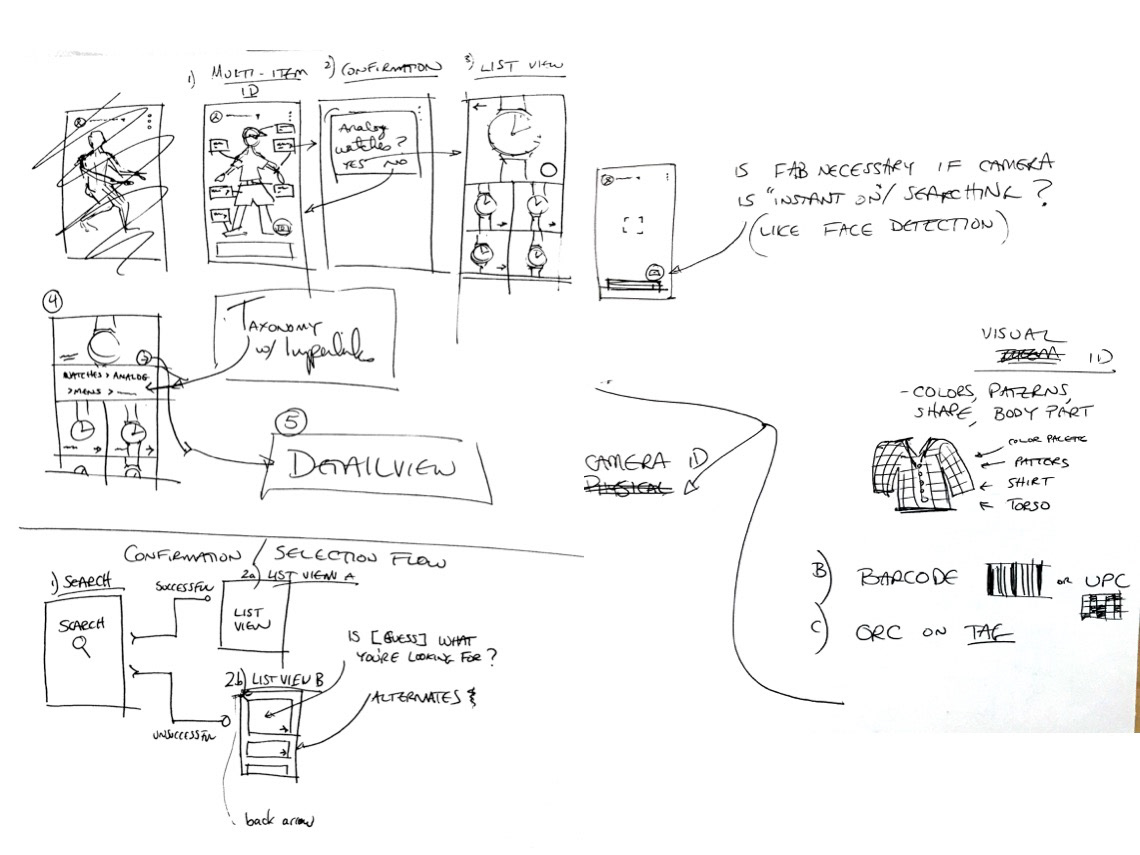 1) MULTI-ITEM
ID
2) CONFIRMATION
3) LIST VIEW
Analog
watches?
YES NO
4
TAXONOMY
w/ hyperlinks
WATCHES > ANALOG
> MENS >
5
DETAILVIEW
IS FAB NECESSARY IF CAMERA
IS "INSTANT ON"/SEARCHING?
(LIKE FACE DETECTION)
CONFIRMATION / SELECTION FLOW
1) SEARCH
SEARCH
SUCCESSFUL
UNSUCCESSFUL
2a) LIST VIEW A
LIST
VIEW
2b) LIST VIEW B
IS [GUESS] WHAT
YOU'RE LOOKING FOR?
ALTERNATES
back arrow
CAMERA ID
PHYSICAL
VISUAL
ID
- COLORS, PATERNS,
SHAPE, BODY PART
COLOR PALETE
PATTERS
SHIRT
TORSO
B) BARCODE OR UPC
C) QRC ON TAG